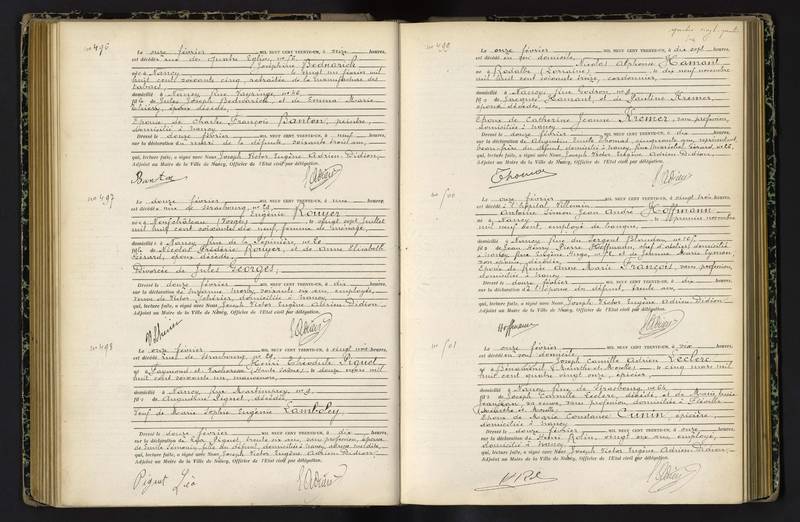 No 496
Le onze février MIL NEUF CENT TRENTE-UN, à seize heures,
est décédée rue des quatre Eglises, no 72,
Joséphine Bednarick
née à Nancy le vingt un février mil
huit cent soixante cinq, retraitée de la manufacture des
tabacs
domiciliée à Nancy, rue
fille de Jules Joseph Bednarick, et de Emma Marie
Thiéry, époux décédés,
Epouse de Charles François Banton, peintre,
domicilié à Nancy
Dressé le douze février MIL NEUF CENT TRENTE-UN, à neuf heures,
sur la déclaration du mari de la défunte, soixante trois ans,
qui, lecture faite, a signé avec Nous Joseph Victor Eugène Adrien Didion,
Adjoint au Maire de la Ville de Nancy, Officier de l'Etat civil par délégation.
Banton
No 497
Le douze février MIL NEUF CENT TRENTE-UN, à heures,
est décédée rue de Strasbourg, no 29,
Eugénie Rouyer
née à Neufchâteau (Vosges) le vingt sept juillet
mil huit cent soixante dix neuf, femme de ménage,
domiciliée à Nancy, rue de la Pépinière, no 20
fille de Nicolas Frédéric Rouyer, et de Anne Elisabeth
Gérard, époux décédés,
Divorcée de Jules Georges,
Dressé le douze février MIL NEUF CENT TRENTE-UN, à dix heures,
sur la déclaration de Suzanne soixante un ans, employée,
domiciliée à Nancy
qui, lecture faite, a signé avec Nous Joseph Victor Eugène Adrien Didion
Adjoint au Maire de la Ville de Nancy, Officier de l'Etat civil par délégation.
No 498
Le onze février MIL NEUF CENT TRENTE-UN, à vingt une heures,
est décédé rue de Strasbourg, no 29,
Henri Théodule Piguet
né à (Haute Saône) le douze mars mil
huit cent soixante un, manoeuvre,
domicilié à Nancy, rue Montesquieu, no 9
fils de Augustine Piguet, décédée,
Veuf de Marie Sophie Eugénie Lamboley,
Dressé le douze février MIL NEUF CENT TRENTE-UN, à dix heures,
sur la déclaration de Léa Piguet, trente six ans, sans profession, épouse
qui, lecture faite, a signé avec Nous Joseph Victor Eugène Adrien Didion,
Adjoint au Maire de la Ville de Nancy, Officier de l'Etat civil par délégation.
Piguet Léa
No 499
Le onze février MIL NEUF CENT TRENTE-UN, à dix sept heures,
est décédé en son domicile,
Nicolas Alphonse Hamant
né à Rodalbe (Lorraine) le dix neuf novembre
mil huit cent soixante treize, cordonnier,
domicilié à Nancy, rue Godron, no 8
fils de Jacques Hamant, et de Pauline Kremer,
époux décédés,
Epoux de Catherine Jeanne Kremer, sans profession,
domiciliée à Nancy
Dressé le douze février MIL NEUF CENT TRENTE-UN, à dix heures,
sur la déclaration de Emile Thomas, cinquante ans, représentant,
beau-père du défunt, domicilié à Nancy,
qui, lecture faite, a signé avec Nous Joseph Victor Eugène Adrien Didion,
Adjoint au Maire de la Ville de Nancy, Officier de l'Etat civil par délégation.
Thomas
No 500
Le onze février MIL NEUF CENT TRENTE-UN, à vingt trois heures,
est décédé à l'hôpital Villemin
Antoine Simon Jean André Hoffmann
né à Nancy le premier novembre
mil neuf cent, employé de banque,
domicilié à Nancy, rue du Sergent Blandan, no 167,
fils de Jean Henry Pierre Hoffmann, chef d'atelier, domicilié
à Nancy, rue Eugène Hugo, no 72, et de Jeanne Marie
son épouse, décédée
Epoux de Renée Anne Marie François, sans profession,
domiciliée à Nancy
Dressé le douze février MIL NEUF CENT TRENTE-UN, à dix heures,
sur la déclaration de l'épouse du défunt, trente ans,
qui, lecture faite, a signé avec Nous Joseph Victor Eugène Adrien Didion
Adjoint au Maire de la Ville de Nancy, Officier de l'Etat civil par délégation.
Hoffmann
No 501
Le onze février MIL NEUF CENT TRENTE-UN, à heures,
est décédé en son domicile,
Joseph Camille Adrien Leclerc
né à Bénaménil (Meurthe et Moselle) le cinq mars mil
huit cent quatre vingt onze, épicier,
domicilié à Nancy, rue de Strasbourg, no 64
fils de Joseph Camille Leclerc, décédé, et de Marie
sa veuve, sans profession, domiciliée à
(Meurthe et Moselle)
Epoux de Marie Constance Cunin, épicière
domiciliée à Nancy
Dressé le douze février MIL NEUF CENT TRENTE-UN, à onze heures,
sur la déclaration de Henri Rolin, vingt six ans, employé,
domicilié à Nancy
qui, lecture faite, a signé avec Nous Joseph Victor Eugène Adrien Didion,
Adjoint au Maire de la Ville de Nancy, Officier de l'Etat civil par délégation.